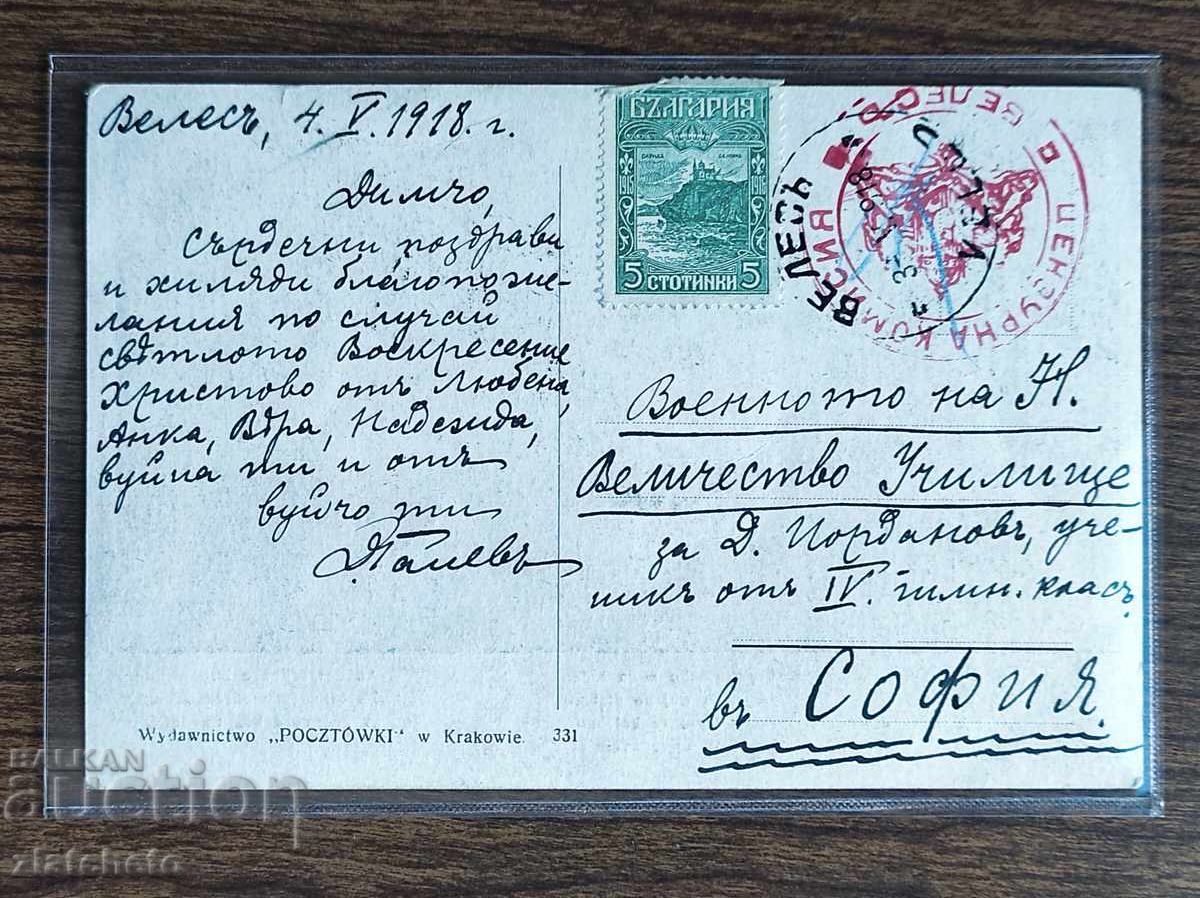 Велесъ, 4. V. 1918. г.
Димчо,
Сърдечни поздрави
и хиляди благопоже-
лания по случай
свѣтлото Воскресение
Христово отъ Любена,
Анка, Вѣра, Надежда,
вуйна ти и отъ
вуйчо ти
БЪЛГАРИЯ
1916 1916
5 СТОТИНКИ 5
ВЕЛЕСЪ
ЦЕНЗУРНА КОМИСИЯ
ВЕЛЕСЪ
Военното на Н.
Величество Училище
за Д. Йордановъ, уче-
никъ отъ IV. гимн. класъ
въ София.
Wydawnictwo „POCZTÓWKI" w Krakowie. 331
BALKAN
auction
zlatcheto